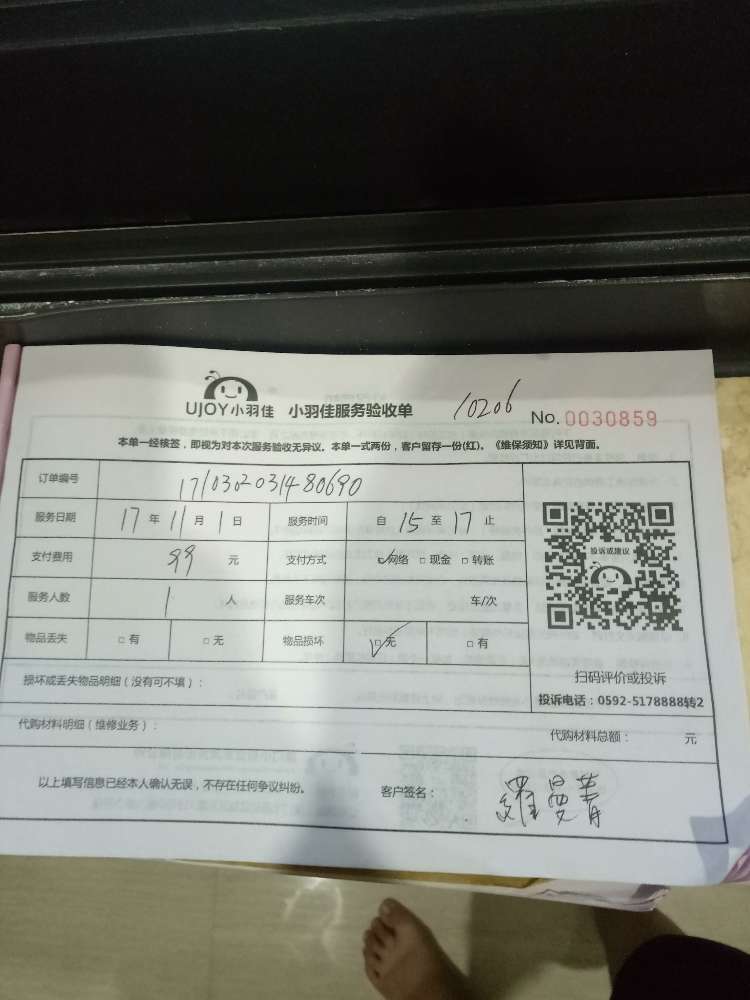 UJOY小羽佳 小羽佳服务验收单 10206 No. 0030859
本单一经核签，即视为对本次服务验收无异议。本单一式两份，客户留存一份(红)。《维保须知》详见背面。
订单编号 171030203148069​0
服务日期 17 年 11 月 1 日 服务时间 自 15 至 17 止
支付费用 99 元 支付方式 ☑网络 □现金 □转账
服务人数 1 人 服务车次 车/次
物品丢失 □有 □无 物品损坏 ☑无 □有
投诉或建议
扫码评价或投诉
投诉电话：0592-5178888转2
损坏或丢失物品明细（没有可不填）：
代购材料明细（维修业务）： 代购材料总额： 元
以上填写信息已经本人确认无误，不存在任何争议纠纷。 客户签名：